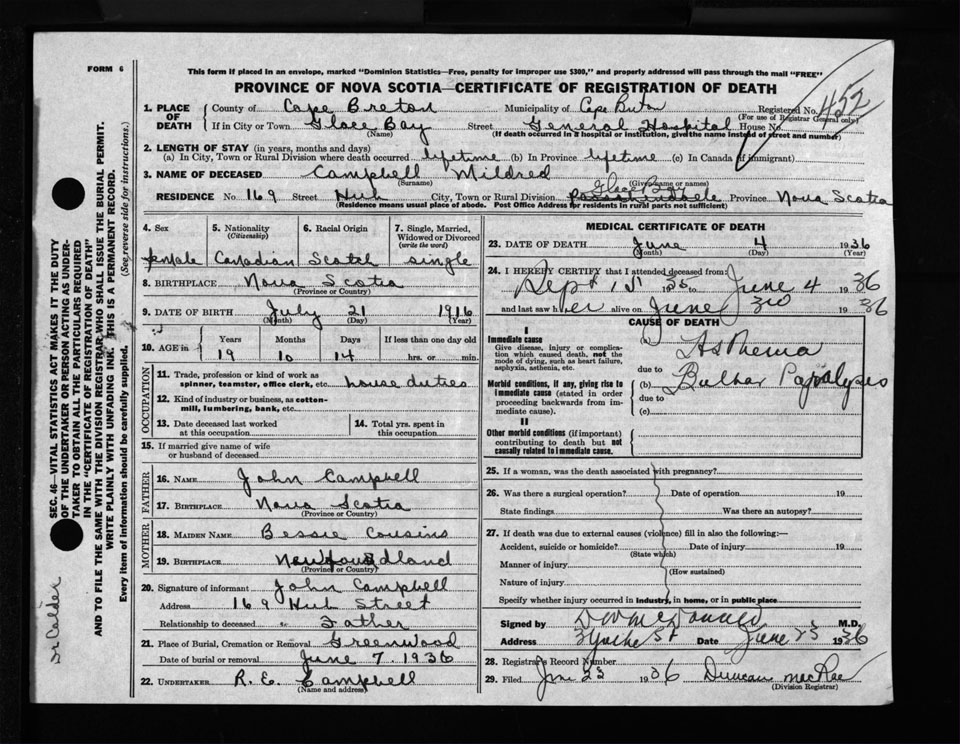 FORM 6
This form if placed in an envelope, marked "Dominion Statistics—Free, penalty for improper use $300," and properly addressed will pass through the mail "FREE"
PROVINCE OF NOVA SCOTIA—CERTIFICATE OF REGISTRATION OF DEATH
1. PLACE OF DEATH County of Cape Breton Municipality of Cape Breton Registered No. 452
(For use of Registrar General only)
If in City or Town Glace Bay Street General Hospital House No.
(Name) (If death occurred in a hospital or institution, give the name instead of street and number)
2. LENGTH OF STAY (in years, months and days)
(a) In City, Town or Rural Division where death occurred lifetime (b) In Province lifetime (c) In Canada (if immigrant)
3. NAME OF DECEASED Campbell Mildred
(Surname) (Given name or names)
Glace Bay
RESIDENCE No. 169 Street Hub City, Town or Rural Division Province Nova Scotia
(Residence means usual place of abode. Post Office Address for residents in rural parts not sufficient)
4. Sex 5. Nationality (Citizenship) 6. Racial Origin 7. Single, Married, Widowed or Divorced (write the word)
female Canadian Scotch single
8. BIRTHPLACE Nova Scotia
(Province or Country)
9. DATE OF BIRTH July 21 1916
(Month) (Day) (Year)
10. AGE in Years Months Days If less than one day old
19 10 14 hrs. or min.
OCCUPATION
11. Trade, profession or kind of work as spinner, teamster, office clerk, etc. house duties
12. Kind of industry or business, as cotton-mill, lumbering, bank, etc.
13. Date deceased last worked at this occupation 14. Total yrs. spent in this occupation
15. If married give name of wife or husband of deceased
FATHER
16. NAME John Campbell
17. BIRTHPLACE Nova Scotia
(Province or Country)
MOTHER
18. MAIDEN NAME Bessie Cousins
19. BIRTHPLACE Newfoundland
(Province or Country)
20. Signature of informant John Campbell
Address 169 Hub Street
Relationship to deceased Father
21. Place of Burial, Cremation or Removal Greenwood
Date of burial or removal June 7 1936
22. UNDERTAKER R. E. Campbell
(Name and address)
MEDICAL CERTIFICATE OF DEATH
23. DATE OF DEATH June 4 1936
(Month) (Day) (Year)
24. I HEREBY CERTIFY that I attended deceased from:
Sept 1st 1935 June 4 1936
and last saw her alive on June 3rd 1936
CAUSE OF DEATH
I
Immediate cause
Give disease, injury or complication which caused death, not the mode of dying, such as heart failure, asphyxia, asthenia, etc.
(a) Asthenia
due to
Morbid conditions, if any, giving rise to immediate cause (stated in order proceeding backwards from immediate cause).
(b) Bulbar Paralysis
due to
(c)
II
Other morbid conditions (if important) contributing to death but not causally related to immediate cause.
25. If a woman, was the death associated with pregnancy?
26. Was there a surgical operation? Date of operation 19
State findings Was there an autopsy?
27. If death was due to external causes (violence) fill in also the following:—
Accident, suicide or homicide? Date of injury 19
(State which)
Manner of injury
(How sustained)
Nature of injury
Specify whether injury occurred in industry, in home, or in public place
Signed by M.D.
Address Date June 23 1936
28. Registrar's Record Number
29. Filed Jun 23 1936 Duncan MacRae
(Division Registrar)
SEC. 46—VITAL STATISTICS ACT MAKES IT THE DUTY
OF THE UNDERTAKER OR PERSON ACTING AS UNDER-
TAKER TO OBTAIN ALL THE PARTICULARS REQUIRED
IN THE "CERTIFICATE OF REGISTRATION OF DEATH"
AND TO FILE THE SAME WITH THE DIVISION REGISTRAR WHO SHALL ISSUE THE BURIAL PERMIT.
WRITE PLAINLY WITH UNFADING INK. THIS IS A PERMANENT RECORD.
Every item of information should be carefully supplied. (See reverse side for instructions.)
Dr Calder